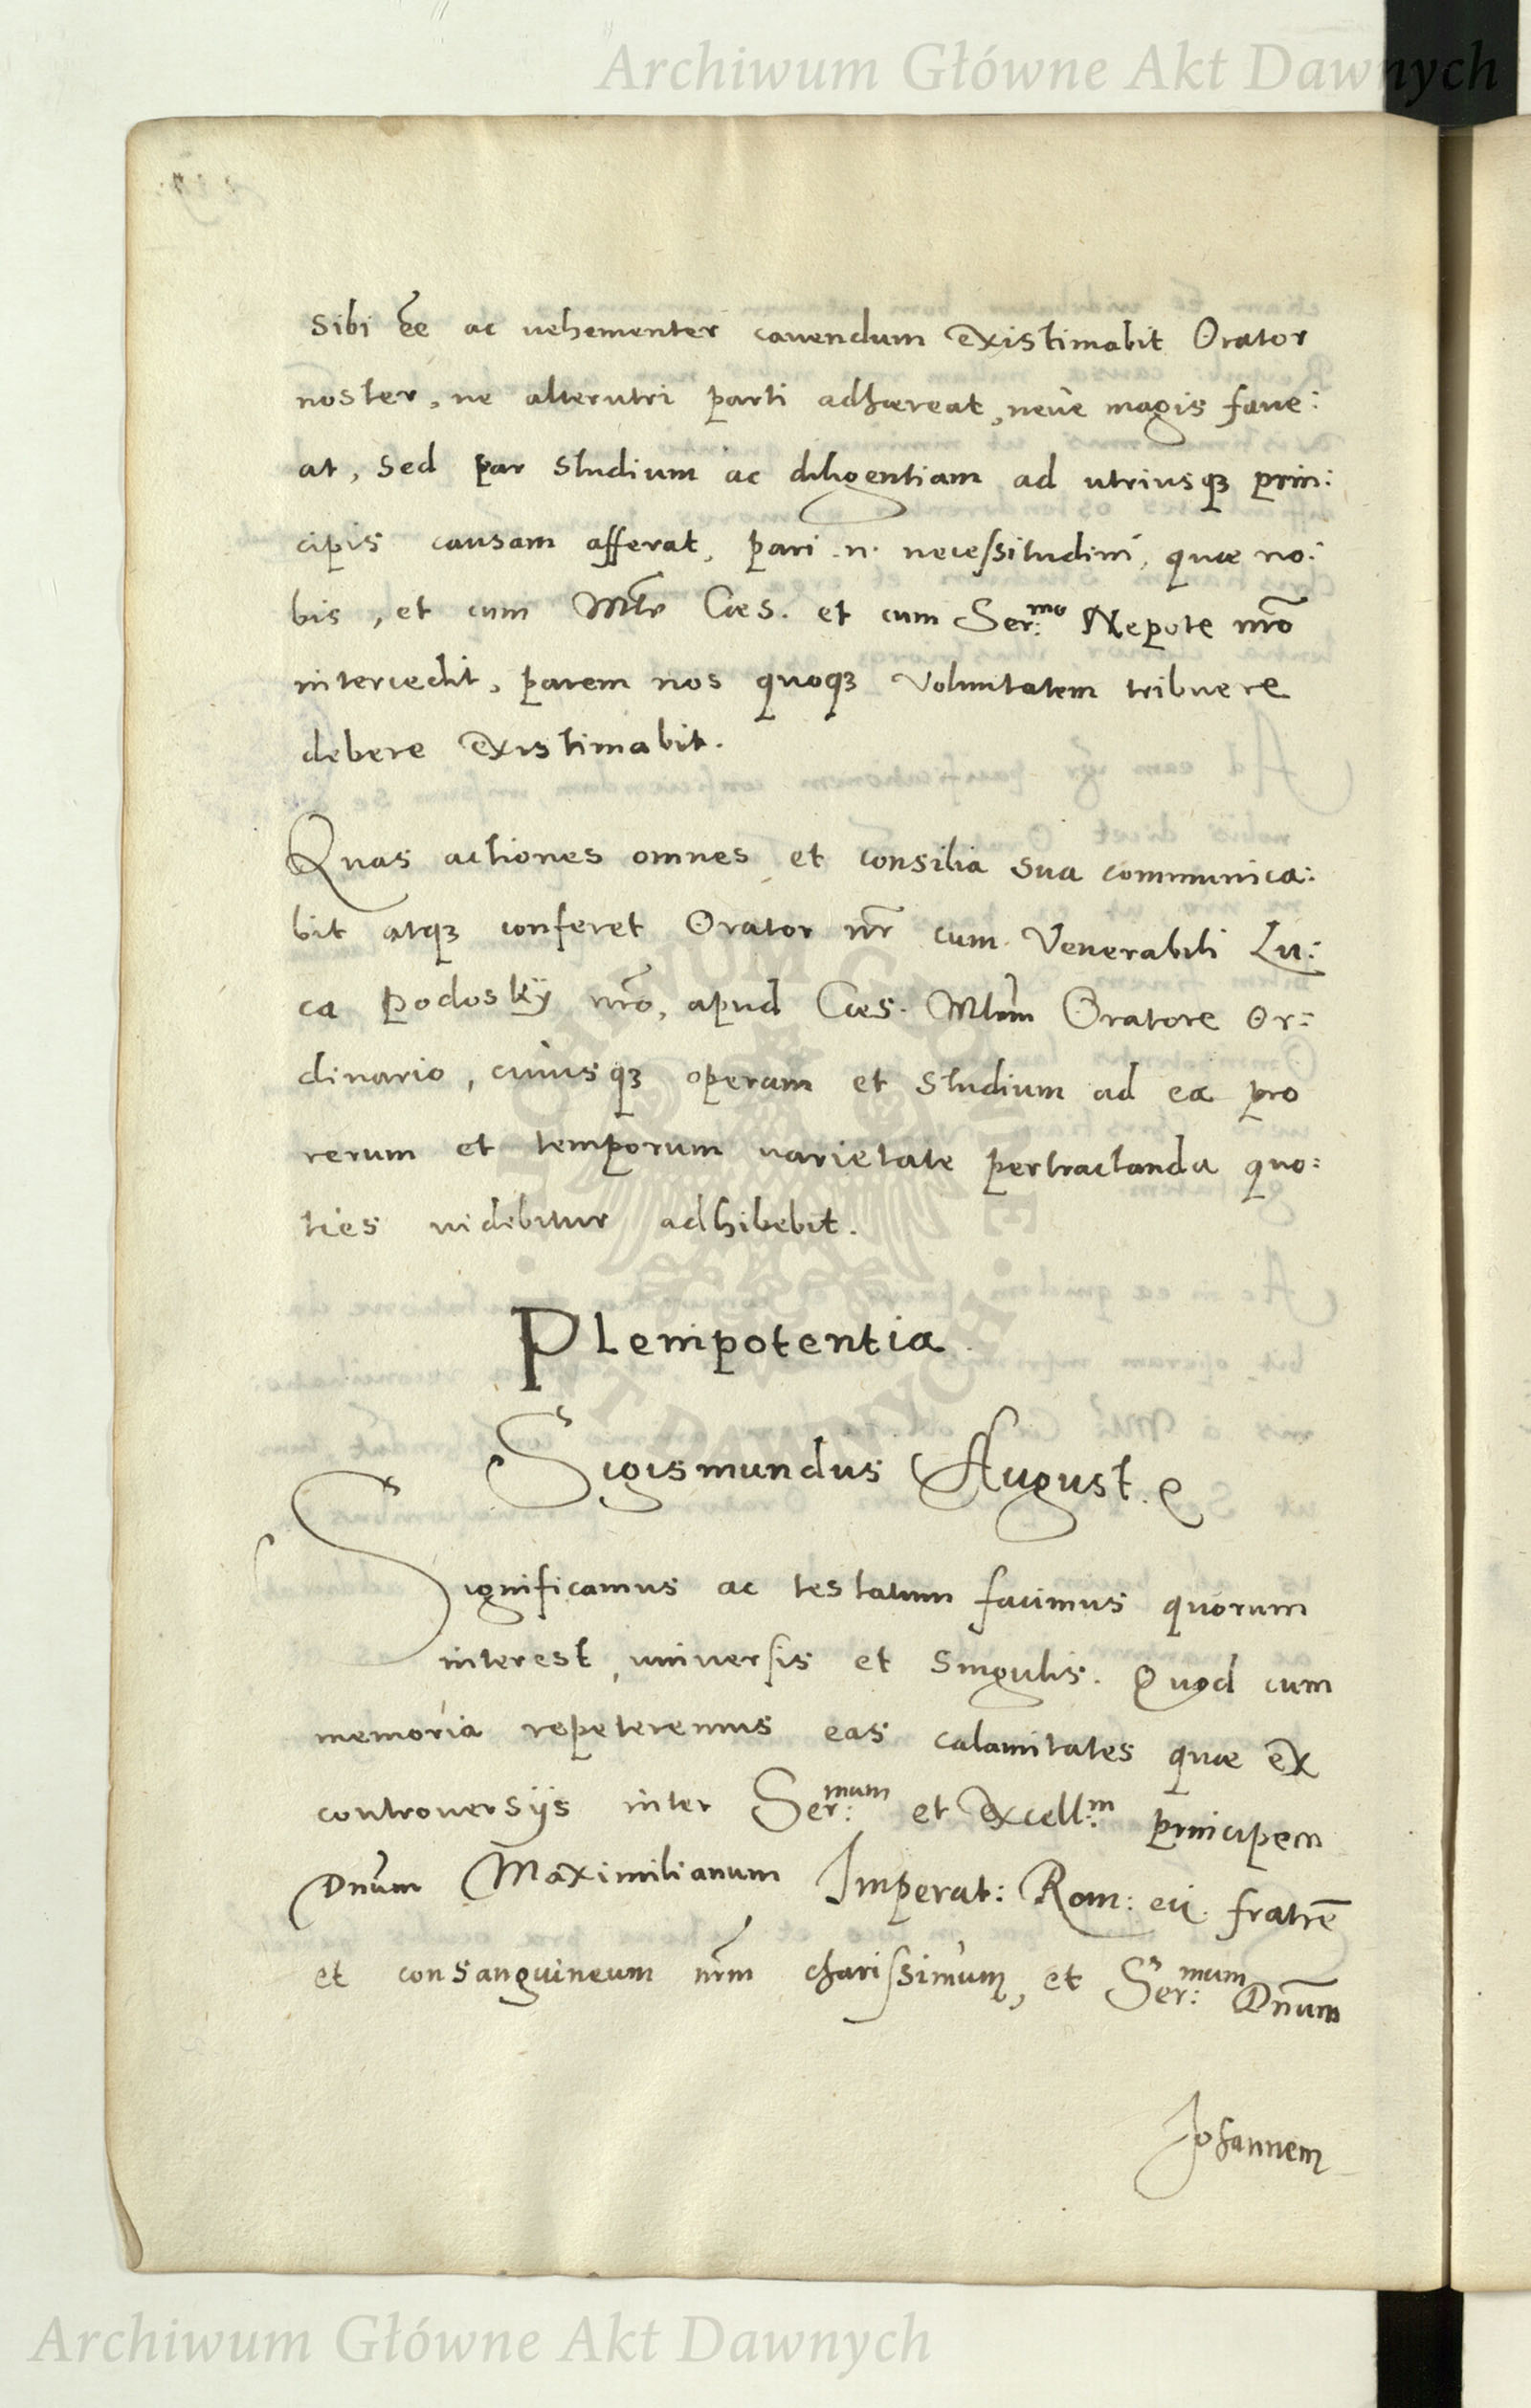 Archiwum Główne Akt Dawnych
sibi ēe ac uehementer cauendum existimabit Orator
noster, ne alterutri parti adhæreat, neue magis faue:
at, sed par studium ac diligentiam ad utriusqꝫ prin:
cipis causam afferat, pari .n. necessitudini, quæ no:
bis, et cum Mte Cæs. et cum Ser:mo Nepote nrō
intercedit, parem nos quoqꝫ voluntatem tribuere
debere existimabit.
Quas actiones omnes et consilia sua communica:
bit atqꝫ conferet Orator nr̄ cum Venerabili Lu:
ca Podosky nrō, apud Cæs. Mtem Oratore Or:
dinario, cuiusqꝫ operam et studium ad ea pro
rerum et temporum varietate pertractanda quo:
ties uidebitur adhibebit.
Plenipotentia.
Sigismundus August. &
Significamus ac testatum facimus quorum
interest, uniuersis et singulis. Quod cum
memoria repeteremus eas calamitates quæ ex
controuersijs inter Ser:mum et excell:m principem
Dnūm Maximilianum Imperat: Rom: eū. fratrē
et consanguineum nrm̄ charissimum, et Ser:mum Dnūm
Johannem
ARCHIWUM GŁÓWNE AKT DAWNYCH
Archiwum Główne Akt Dawnych